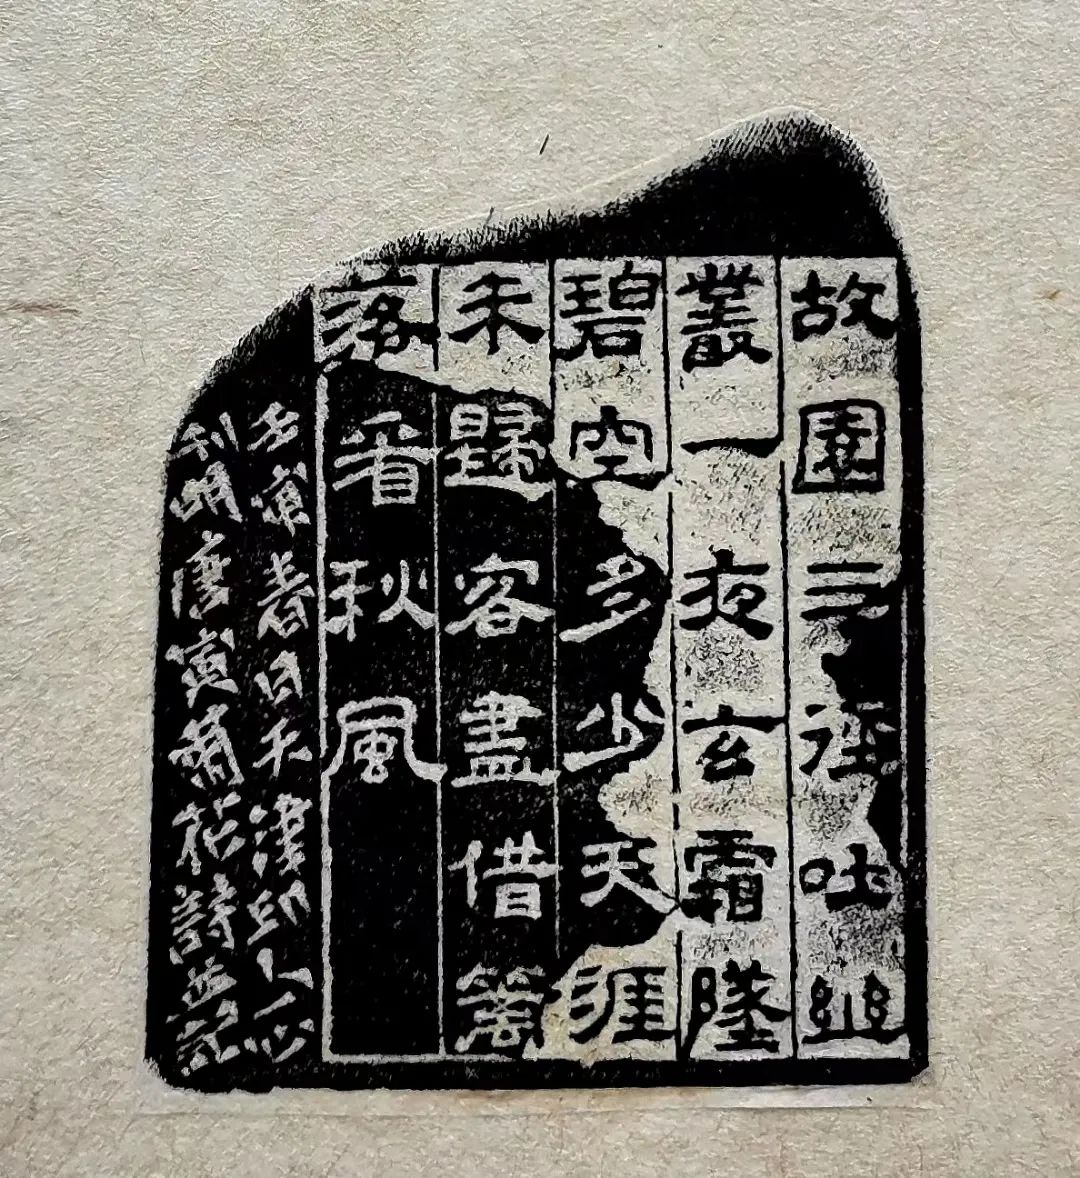 故園三徑吐幽
叢一夜玄霜墜
碧空多少天涯
未歸客盡借篱
落看秋風
壬寅春日天津印人
明唐寅菊花詩並記